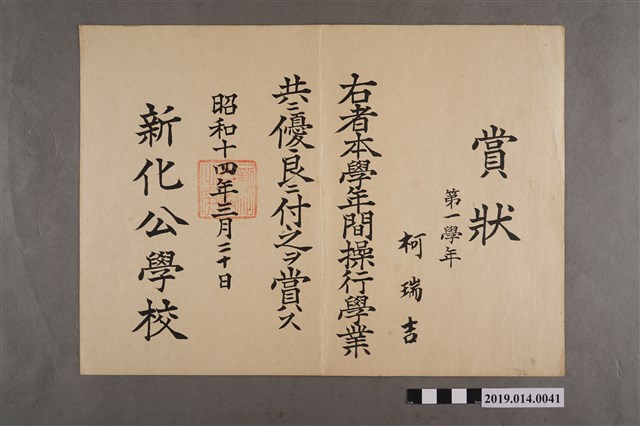 賞狀
第一學年
柯瑞吉
右者本學年間操行學業
共ニ優良ニ付之ヲ賞ス
昭和十四年三月二十日
新化公學校
2019.014.0041